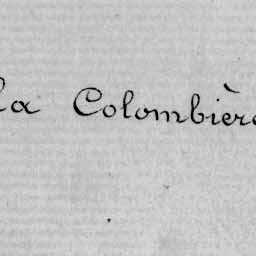 la Colombière